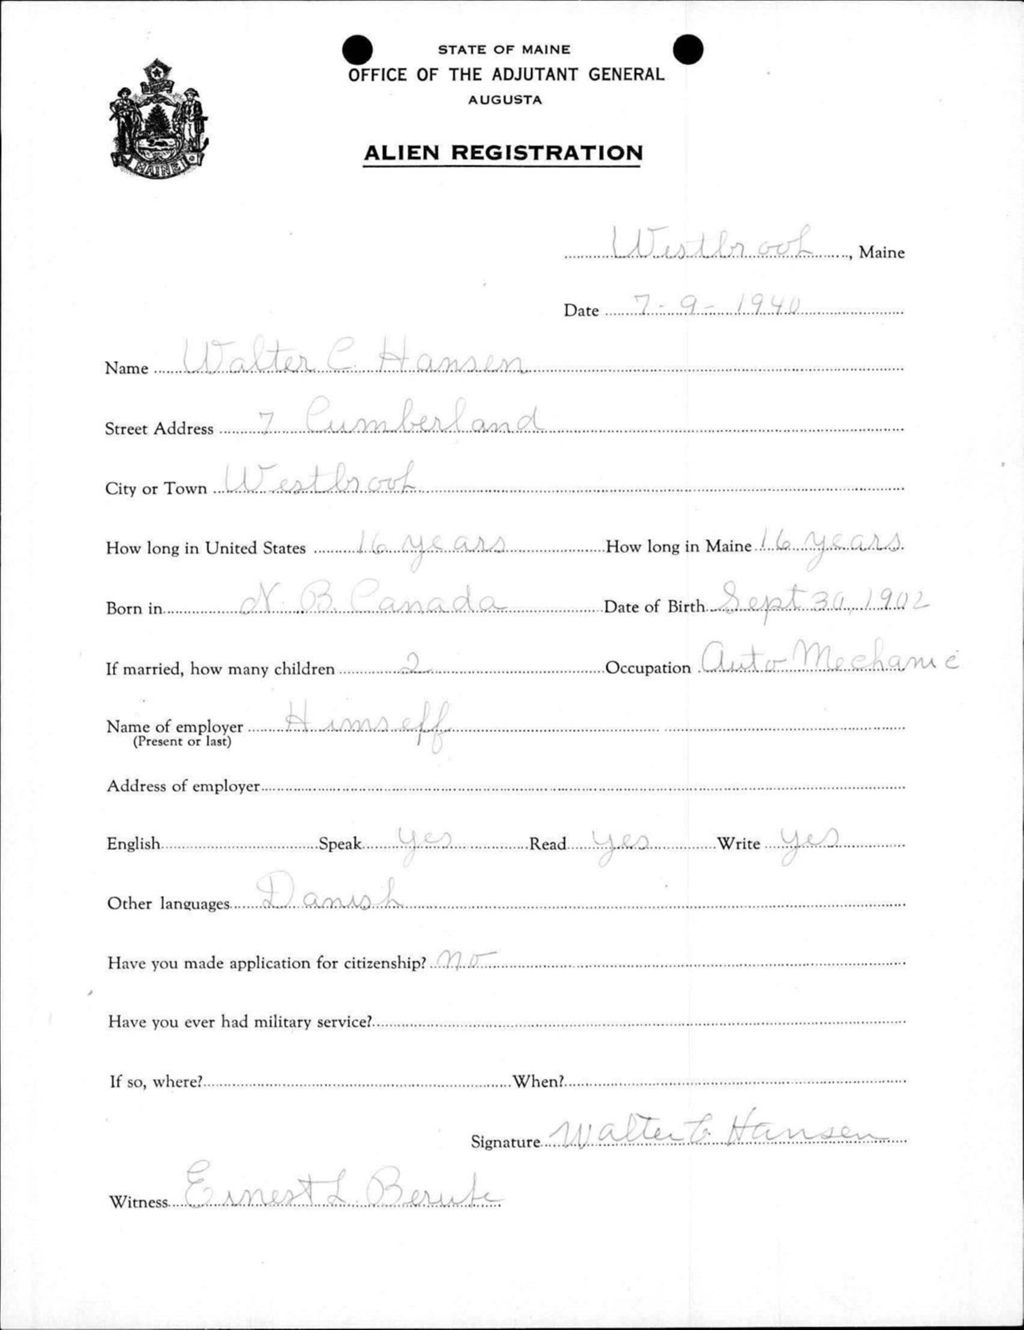 STATE OF MAINE
OFFICE OF THE ADJUTANT GENERAL
AUGUSTA
ALIEN REGISTRATION
MAINE
Westbrook, Maine
Date 7-9-1940
Name Walter C. Hansen
Street Address 7 Cumberland
City or Town Westbrook
How long in United States 16 years How long in Maine 16 years
Born in N. B. Canada Date of Birth Sept 30, 1902
If married, how many children 2 Occupation Auto Mechanic
Name of employer Himself
(Present or last)
Address of employer
English Speak Yes Read Yes Write Yes
Other languages Danish
Have you made application for citizenship? No
Have you ever had military service?
If so, where? When?
Signature Walter C. Hansen
Witness Ernest L. Berube